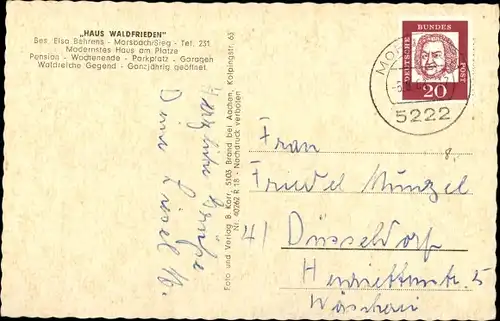 „HAUS WALDFRIEDEN"
Bes. Elsa Behrens - Morsbach/Sieg - Tel. 231
Modernstes Haus am Platze
Pension - Wochenende - Parkplatz - Garagen
Waldreiche Gegend - Ganzjährig geöffnet.
Herzliche Grüße
Deine Liesel M.
Foto und Verlag B. Korr, 5105 Brand bei Aachen, Kolpingstr. 63
Nr. 40262 R 18 - Nachdruck verboten
DEUTSCHE
BUNDES
POST
20
MO
5222
8.
Frau
Friedel Münzel
41 Düsseldorf
Henriettenstr. 5
Wäscherei